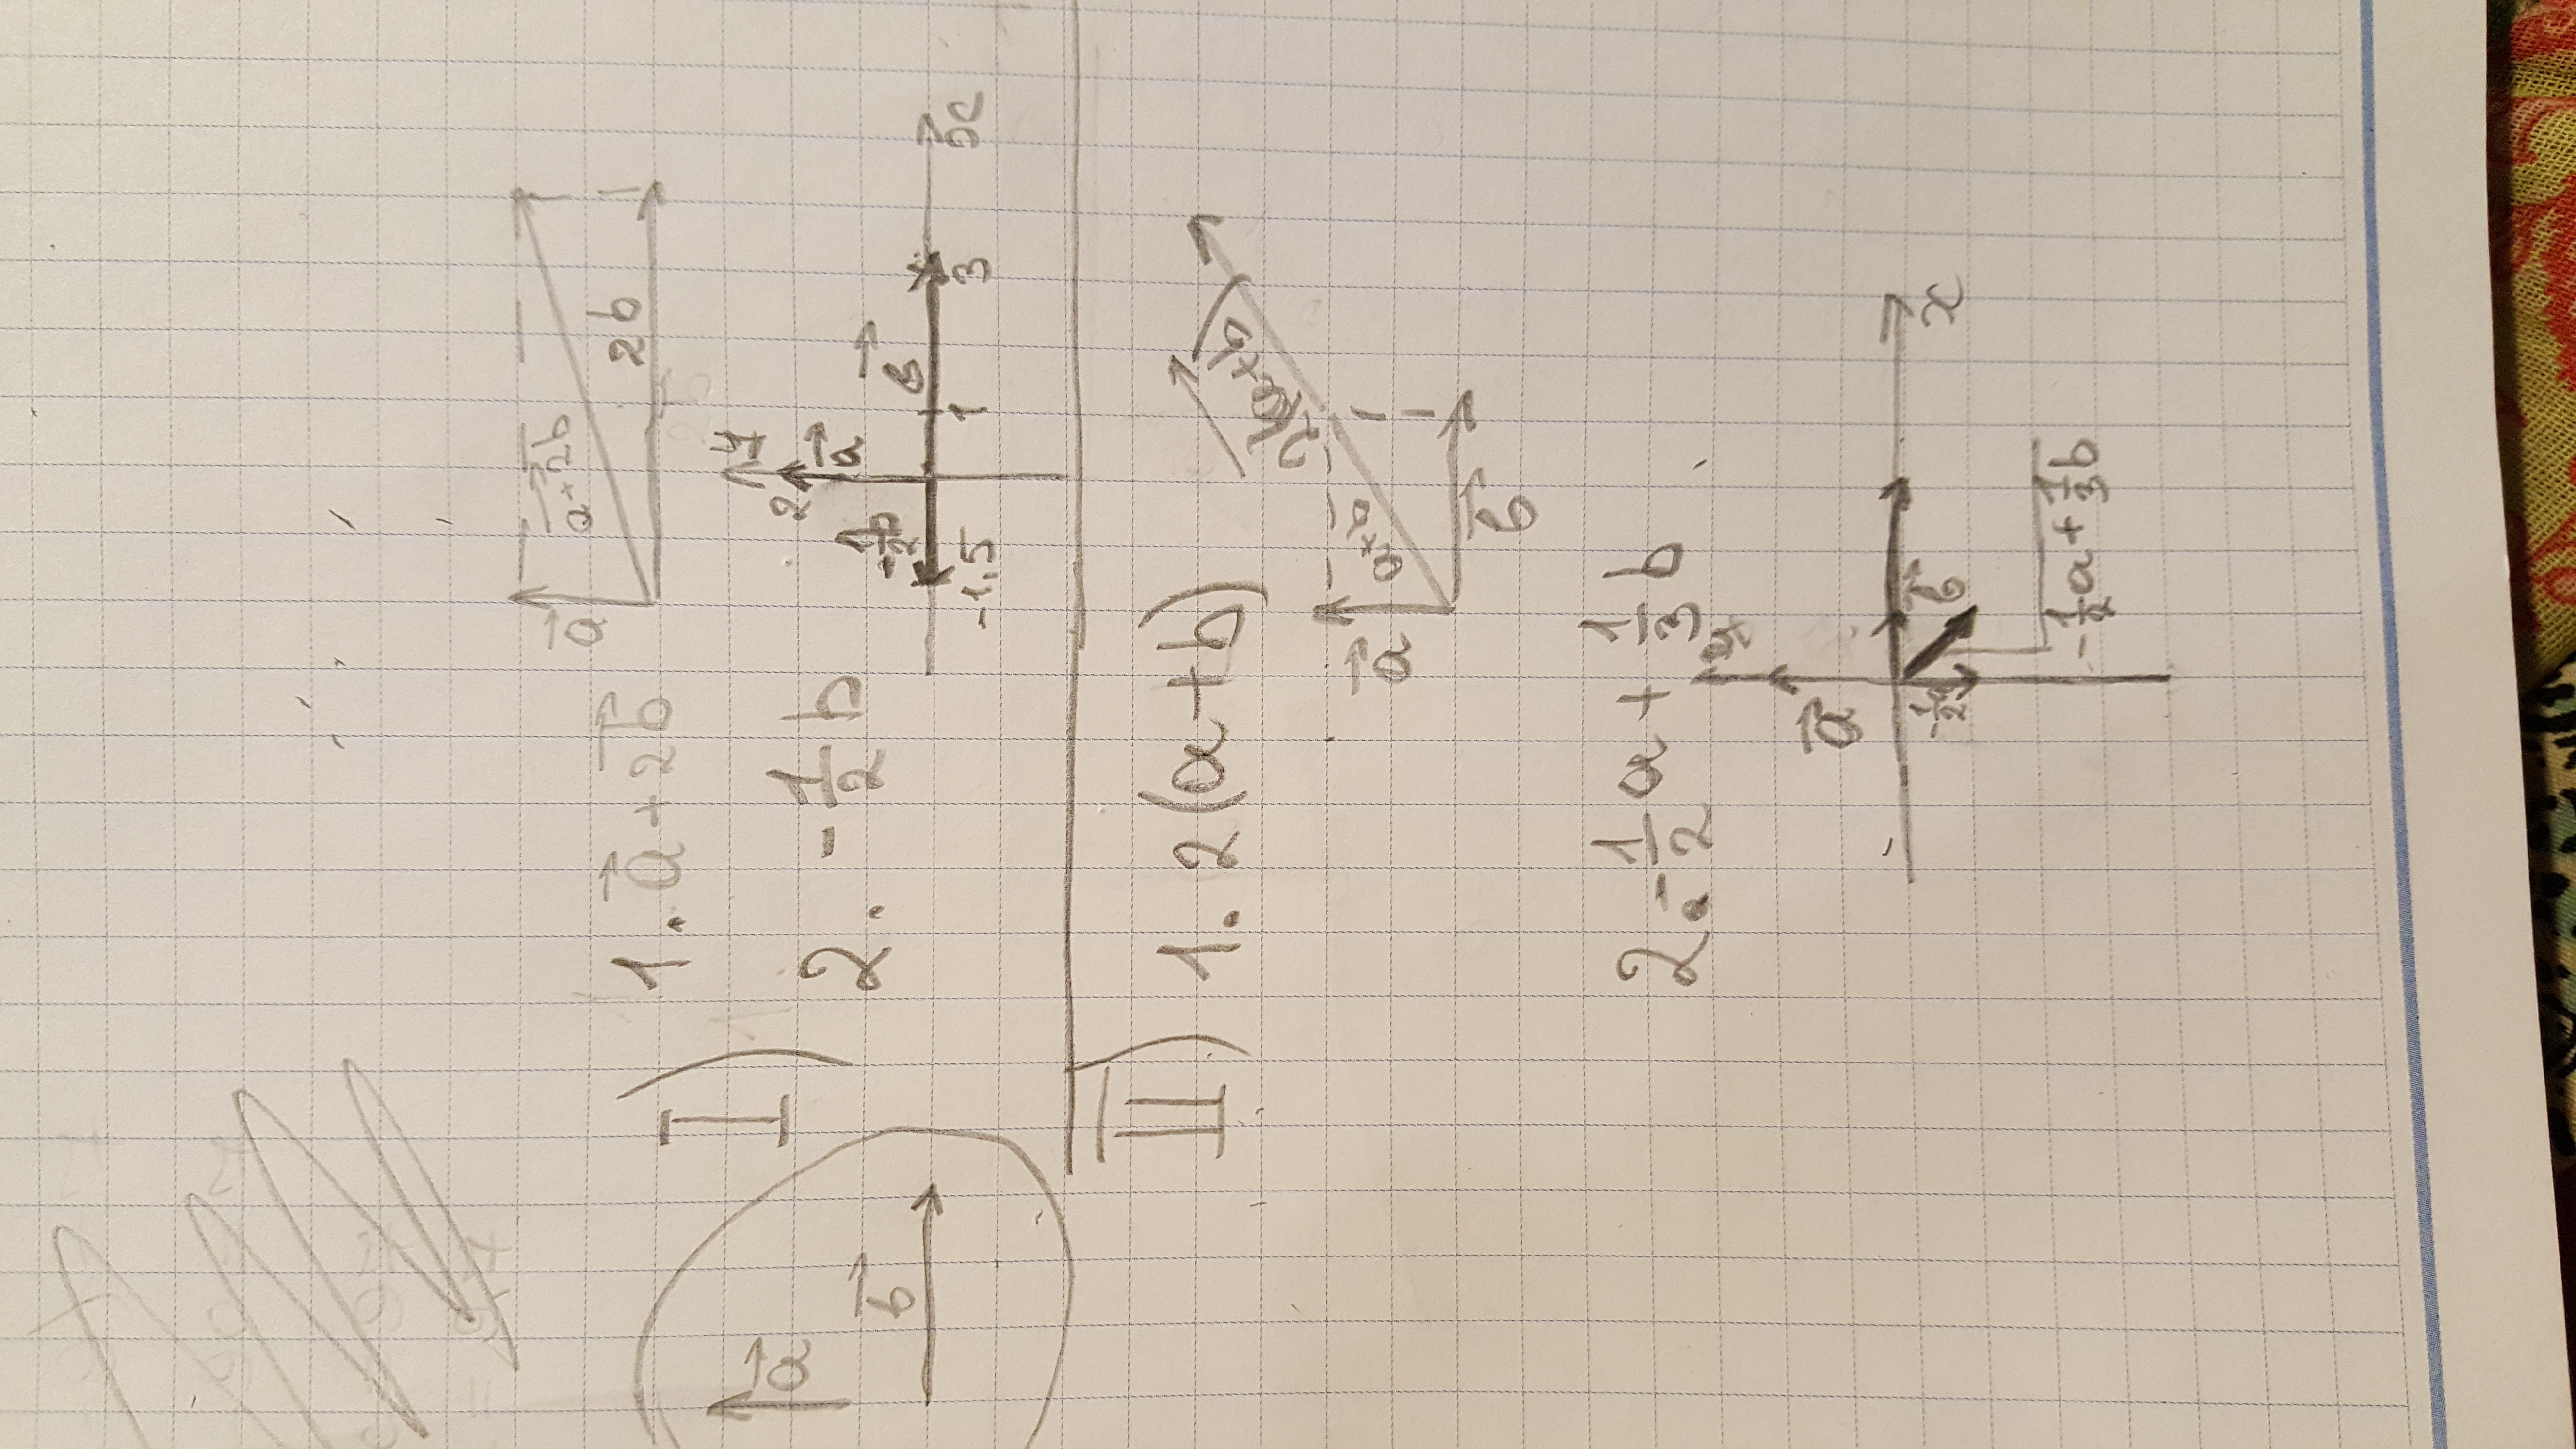 a⃗
b⃗
I)
1. a⃗ + 2b⃗
a⃗
a⃗+2b⃗
2b
2. -1/2 b
y
2
a⃗
-1/2b
b⃗
-1,5
1
3
x
II)
1. 2(a+b)
a⃗
a+b
2(a+b)
b⃗
2. -1/2 a + 1/3 b
y
a⃗
b⃗
x
-1/2a
-1/2 a + 1/3 b